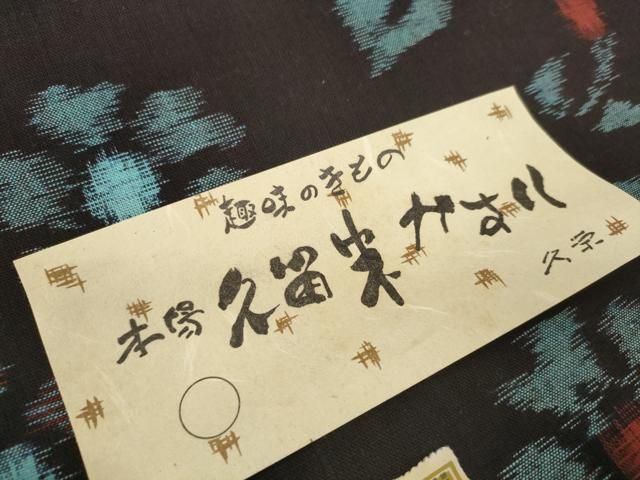 趣味のきもの
本場 久留米かすり